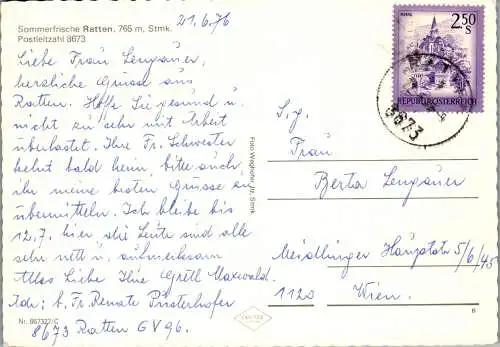 21.6.76
Sommerfrische Ratten, 765 m, Stmk.
Postleitzahl 8673
Liebe Frau Lengauer,
herzliche Grüsse aus
Ratten. Hoffe Sie gesund u.
nicht zu sehr mit Arbeit
überlastet. Ihre Fr. Schwester
kehrt bald heim, bitte auch
ihr meine besten Grüsse zu
übermitteln. Ich bleibe bis
12.7. hier, die Leute sind alle
sehr nett u. aufmerksam
Alles Liebe Ihre Gretl Maxwald.
Adr: b. Fr. Renate Pusterhofer
8673 Ratten GV 96.
Nr. 667327/C
Foto
Stmk.
2.50
S
REPUBLIK ÖSTERREICH
8673
S.g.
Frau
Berta Lengauer
Meidlinger Hauptstr 5/6/45
1120 Wien.
6